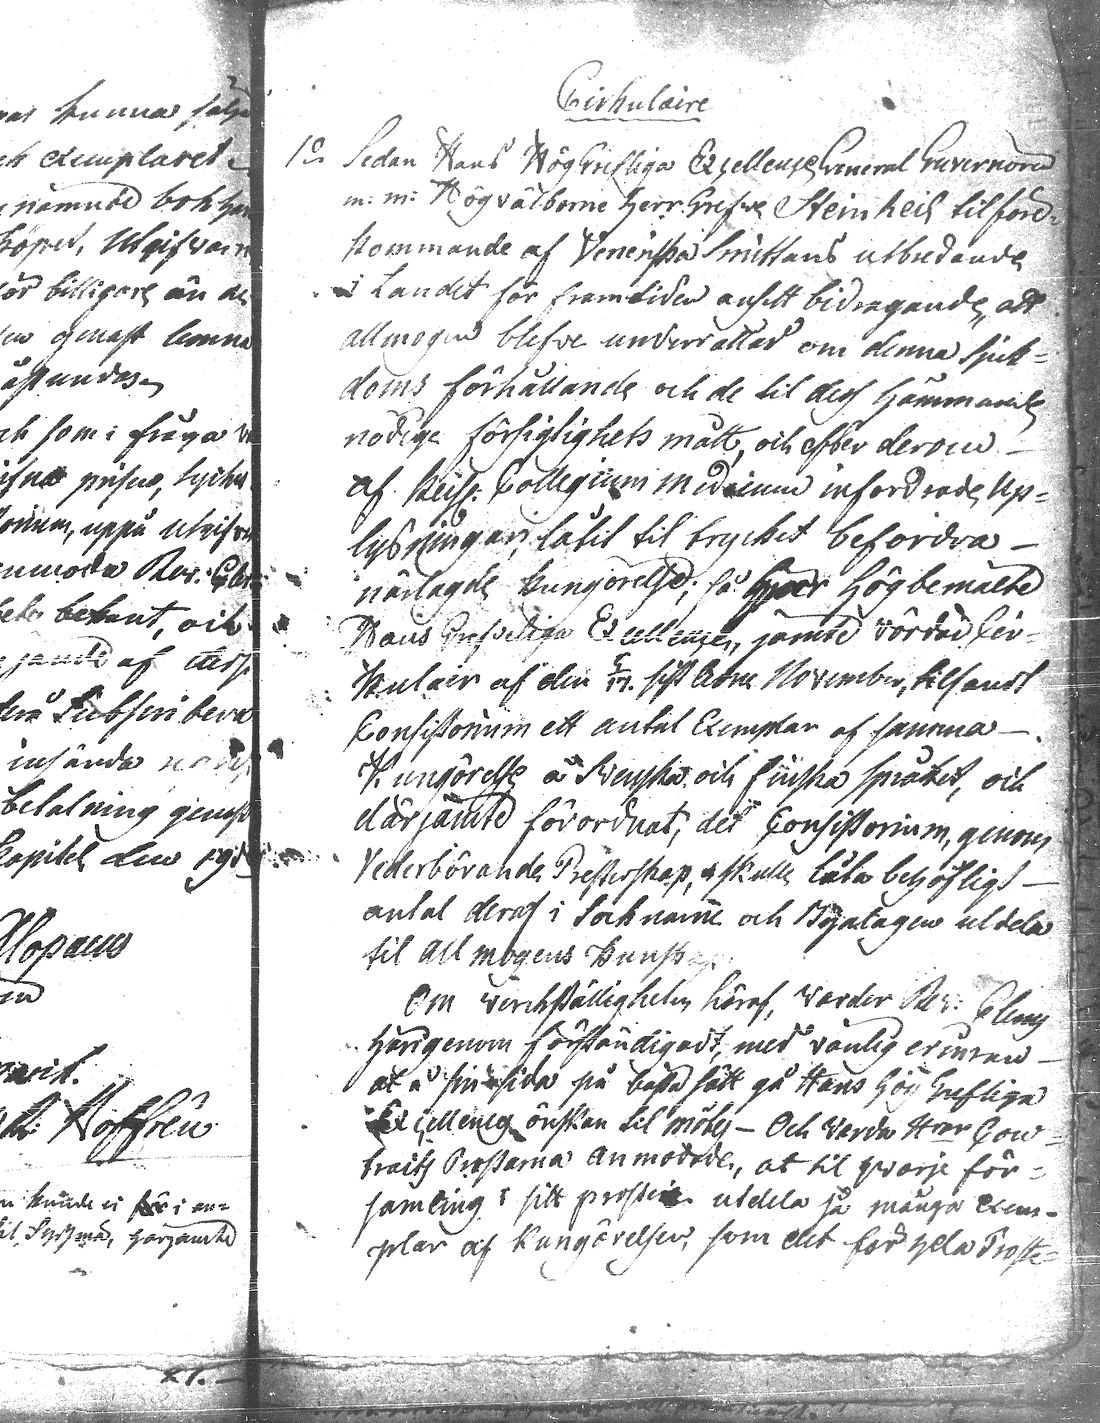 kunna
exemplaret
nämnde bok
Köpet, Utgifvaren
för billigare än
genast
åstundas
och som i fråga
prisus,
uppå
anmoda Rev:
bekant, och
af
Subscribera
insända
betalning genast
Capitel den
Alopaeus
Hoffrén
kunde ei för i an=
härjämte
21. –
Cirkulaire
1º Sedan Hans HögGrefliga Excellence General Guverneuren
m: m: Högvälborne Herr Grefve Steinheil til före=
kommande af Veneriska Smittans utbredande
i Landet för framtiden ansett bidragande, att
allmogen blefve underrättad om denna sjuk=
doms förhållande och de til dess hämmande
nödige försigtighets mått, och efter derom –
af Keijs: Collegium Medicum infordrade Up=
lysningar, låtit til trycket befordra –
närlagde Kungörelse; så har Högbemälte
Hans Grefveliga Excellence, jämte vördad Cir=
kulair af den 5/17 sistledne November, tilsandt
Consistorium ett antal Exemplar af samma –
Kungörelse å Svenska och Finska språket, och
därjämte förordnat, det Consistorium, genom
Vederbörande Presterskap, skulle låta behöfligt –
antal deraf i Socknarne och Byalagen utdela
til Allmogens Kunskap.
Om verckställigheten häraf, varder Rev: Clerus
härigenom förständigadt, med vänlig erinran –
at å sin sida på bästa sätt gå Hans Hög Grefliga
Excellence önskan til mötes – Och varda Herrar Con=
tracts Prostarna anmodade, at til hvarje för=
samling i sitt prosteri utdela så många Exem=
plar af Kungörelsen, som det för hela Proste=